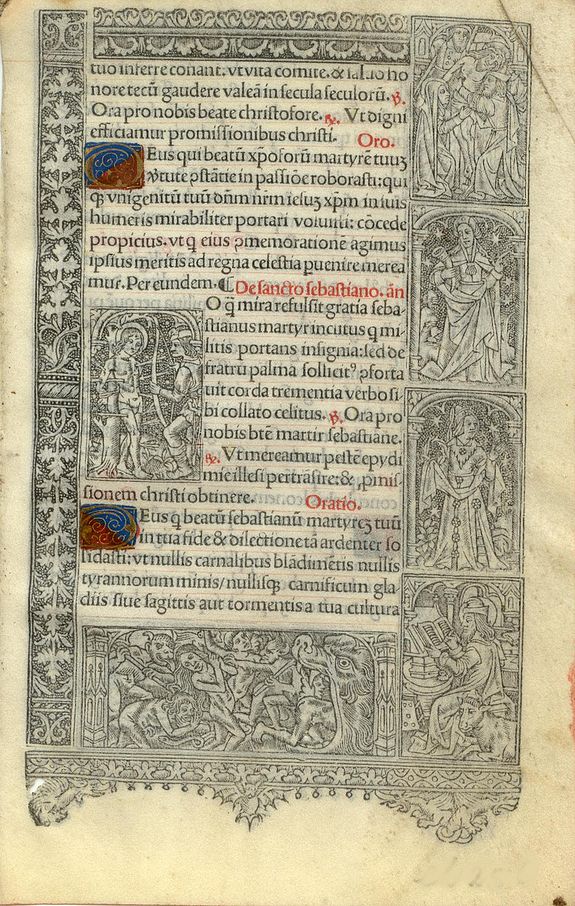 tuo inferre conant. vt vita comite. & i.a.l.uo ho
nore tecū gaudere valeā in secula seculorū. ℣.
Ora pro nobis beate christofore. ℟. Vt digni
efficiamur promissionibus christi. Oro.
Deus qui beatū xp̄oforū martyrē tuuꝫ
v̓tute ꝯstātie in passiōe roborasti: qui
ꝙ vnigenitū tuū dn̄m nr̄m iesuꝫ xp̄m in suis
humeris mirabiliter portari voluisti: cōcede
propicius. vt q eius ꝯmemorationē agimus
ipsius meritis ad regna celestia ꝑuenire merea
mur. Per eundem. ⸿ De sancto sebastiano. an̄
O q̄ mira refulsit gratia seba-
stianus martyr incutus q mi
litis portans insignia: sed de
fratrū palma sollicitꝰ ꝯforta
uit corda trementia verbo si
bi collato celitus. ℣. Ora pro
nobis btē martir sebastiane.
℟. Vt mereamur pestē epydi
mie illesi pertrāsire: & ꝓmis-
sionem christi obtinere. Oratio.
Deus q beatū sebastianū martyreꝫ tuū
in tua fide & dilectione tā ardenter so
lidasti: vt nullis carnalibus blādimētis nullis
tyrannorum minis / nullisqꝫ carnificum gla
diis siue sagittis aut tormentis a tua cultura